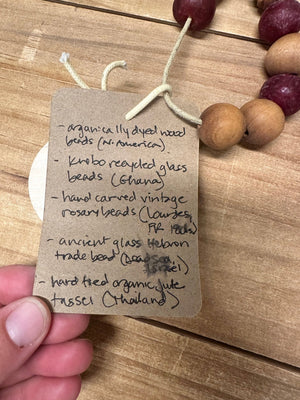 - organically dyed wood
beads (N. America)
- Krobo recycled glass
beads (Ghana)
- hand carved vintage
rosary beads (Lourdes,
FR 1960s)
- ancient glass Hebron
trade bead (Dead Sea,
Israel)
- hand tied organic jute
tassel (Thailand)